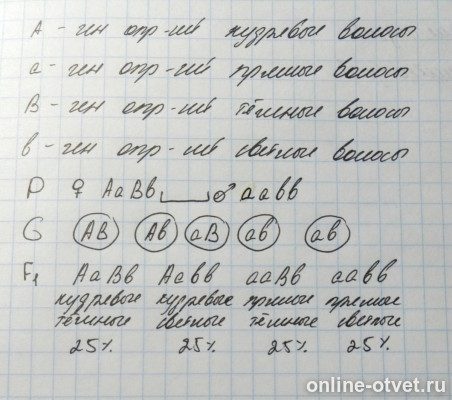 А - ген опр-ий кудрявые волосы
а - ген опр-ий прямые волосы
В - ген опр-ий тёмные волосы
в - ген опр-ий светлые волосы
P ♀ АаВв ♂ аавв
G АВ Ав аВ ав ав
F1 АаВв Аавв ааВв аавв
кудрявые кудрявые прямые прямые
тёмные светлые тёмные светлые
25% 25% 25% 25%
online-otvet.ru